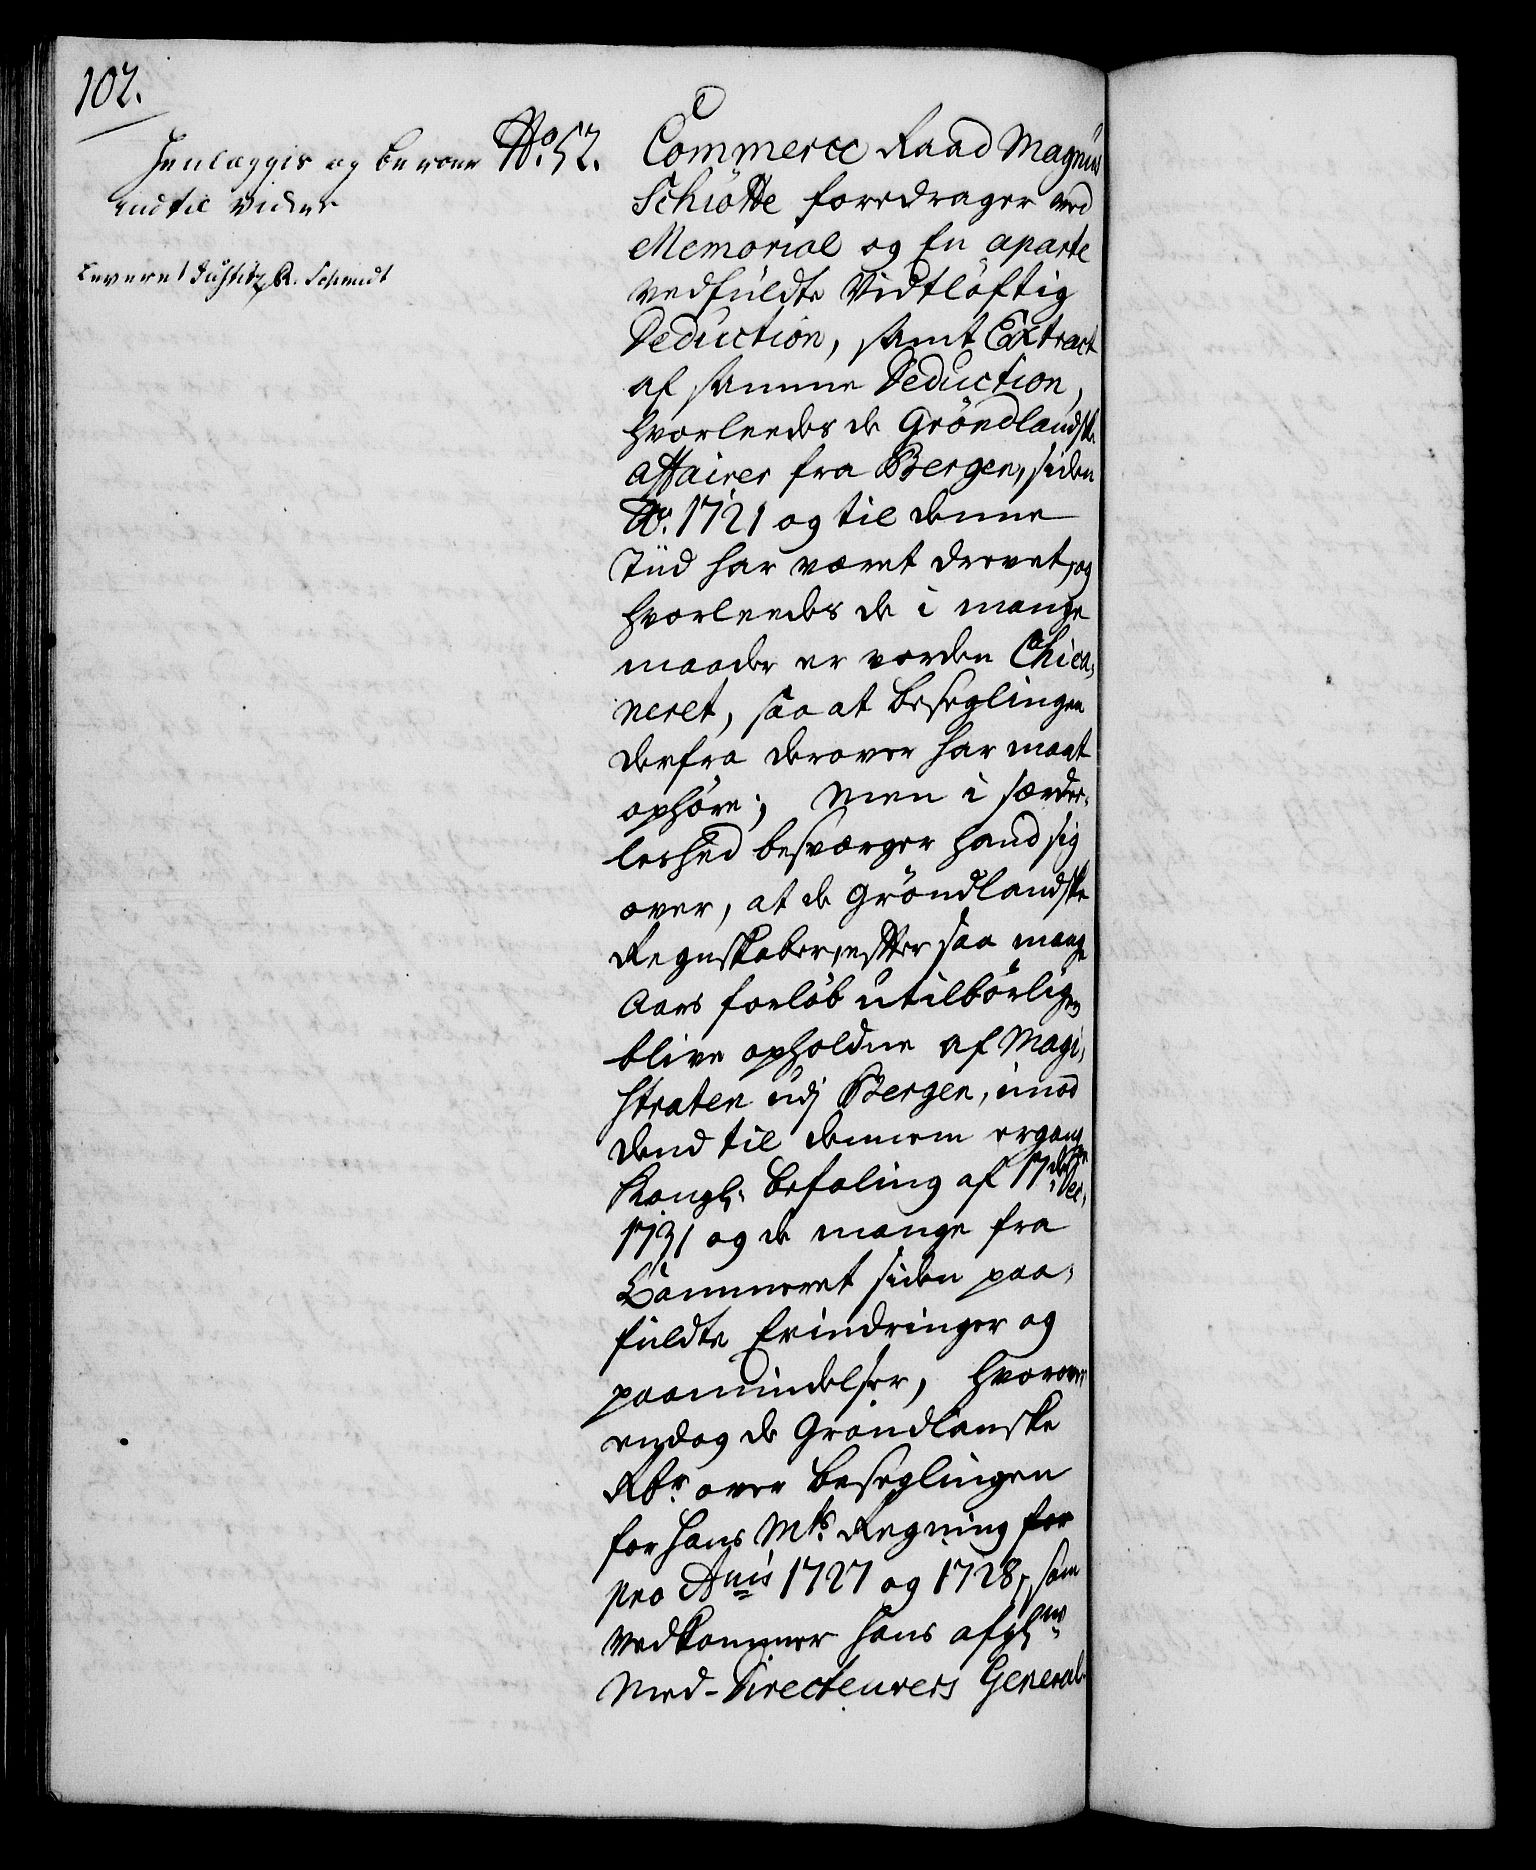 102.
Henlæggis og beroer
indtil videre
Leveret Justitz R. Schmidt
No. 52.
Commerce Raad Magnus
Schiötte foredrager ved
Memorial og En aparte
vedfuldte Vidtlöftig
Deduction, samt Extract
af samme Deduction,
hvorleedes de Gröndlandske
affairer fra Bergen, siden
Ao. 1721 og til denne
Tiid har været drevet, og
hvorleedes de i mange
maader er vorden Chica,
neret, saa at beseglingen
derfra derover har maat
ophöre; Men i særde,
leshed besværger hand sig
over, at de Gröndlandske
Regnskaber, efter saa mange
Aars forlöb utilbörligen
blive opholdne af Magi,
straten udj Bergen, imod
dend til dennem ergangne
Kongl. befaling af 17de Dec.
1731 og de mange fra
Cammeret siden paa,
fuldte Erindringer og
paamindelser, hvorover
endog de Gröndlanske
Rbr. over beseglingen
for Hans Mts. Regning for
pro Anis 1727 og 1728, som
vedkommer hans afgl.
Med-Directeurers General-